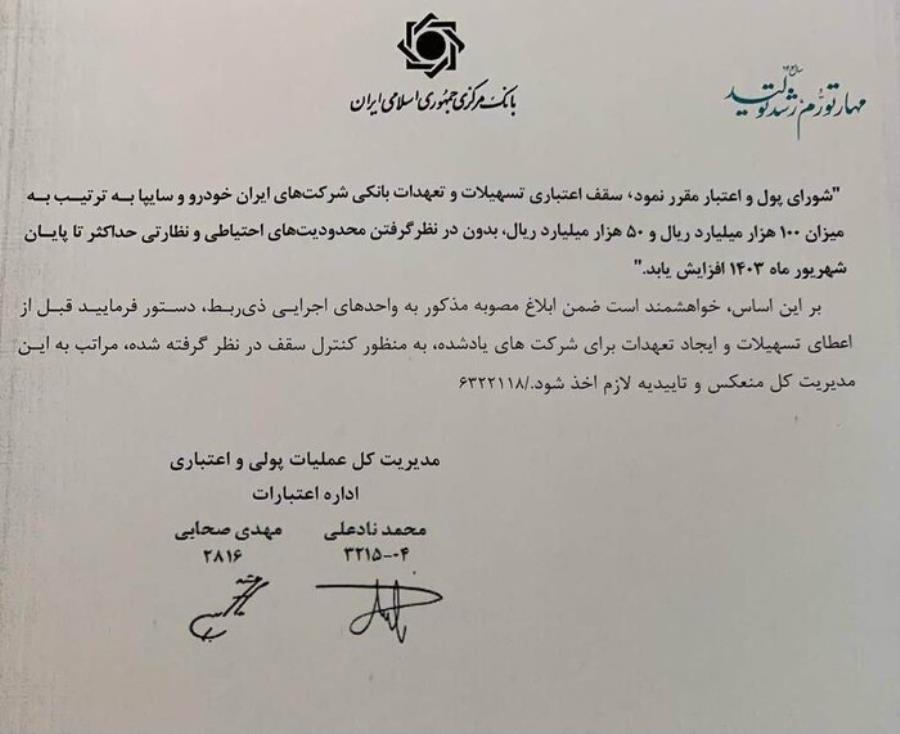 بانک مرکزی جمهوری اسلامی ایران
مهار تورم، رشد تولید
"شورای پول و اعتبار مقرر نمود، سقف اعتباری تسهیلات و تعهدات بانکی شرکت‌های ایران خودرو و سایپا به ترتیب به
میزان ۱۰۰ هزار میلیارد ریال و ۵۰ هزار میلیارد ریال، بدون در نظرگرفتن محدودیت‌های احتیاطی و نظارتی حداکثر تا پایان
شهریور ماه ۱۴۰۳ افزایش یابد."
بر این اساس، خواهشمند است ضمن ابلاغ مصوبه مذکور به واحدهای اجرایی ذی‌ربط، دستور فرمایید قبل از
اعطای تسهیلات و ایجاد تعهدات برای شرکت های یادشده، به منظور کنترل سقف در نظر گرفته شده، مراتب به این
مدیریت کل منعکس و تاییدیه لازم اخذ شود./۶۳۲۲۱۱۸
مدیریت کل عملیات پولی و اعتباری
اداره اعتبارات
محمد نادعلی مهدی صحابی
۳۲۱۵-۰۴ ۲۸۱۶